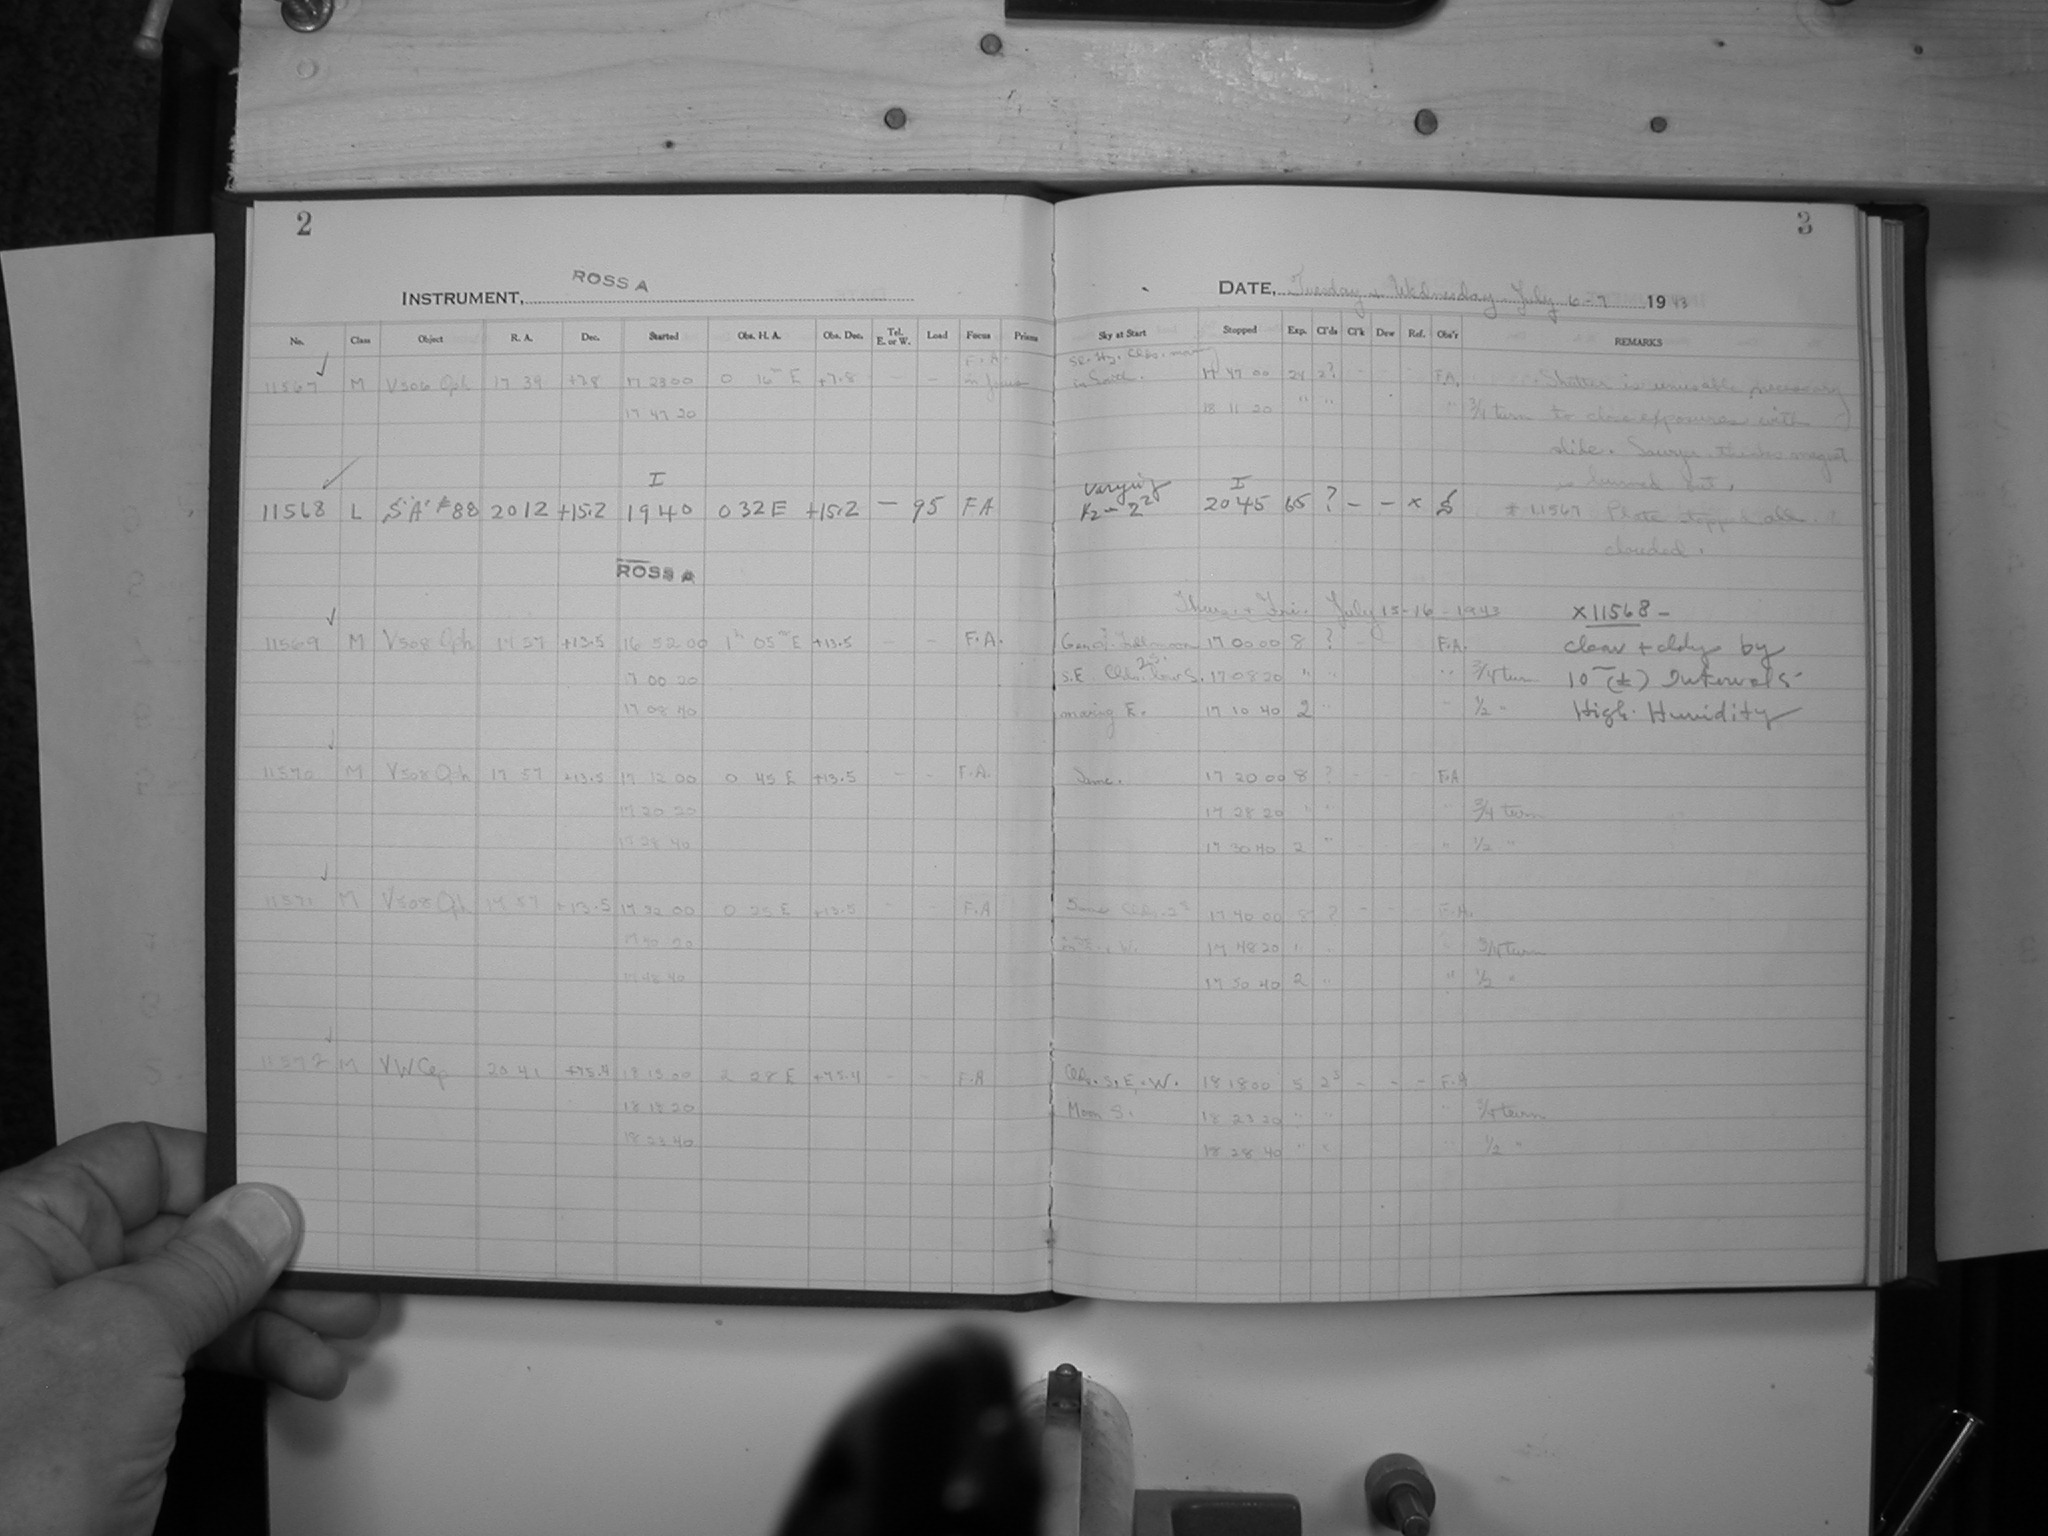 2
ROSS A
INSTRUMENT,
No. Class Object R. A. Dec. Started Obs. H. A. Obs. Dec. Tel. E. or W. Load Focus Prism
F.A.
11567 M V506 Oph 17 39 +7.8 17 23 00 0 16m E +7.8 - - in focus
17 47 20
I
11568 L S"A" #88 2012 +15.2 1940 0 32 E +15.2 — 95 FA
ROSS A
11569 M V508 Oph 17 57 +13.5 16 52 00 1h 05m E +13.5 - - F.A.
17 00 20
17 08 40
11570 M V508 Oph 17 57 +13.5 17 12 00 0 45 E +13.5 - - F.A.
17 20 20
17 28 40
11571 M V508 Oph 17 57 +13.5 17 32 00 0 25 E +13.5 - - F.A
17 40 20
17 48 40
11572 M VW Cep 20 41 +75.4 18 13 00 2 28 E +75.4 - - F.A
18 18 20
18 23 40
3
DATE, Tuesday - Wednesday - July 6-7 1943
Sky at Start Stopped Exp. Cl'ds Cl'k Dew Ref. Obs'r REMARKS
Sl. Hz. Clds. many
in South. 17 47 00 24 2? F.A. Shutter is unusable necessary
18 11 20 " " " 3/4 turn to close exposures with
slide. Sawyer thinks magnet
is burned out.
Varying I
K2 - 2 2045 65 ? - - x # 11567 Plate stopped all
clouded.
Thurs. + Fri. July 15-16-1943 x 11568 -
17 00 00 8 ? - F.A. clear + cldy by
S.E. Clds. low S. 17 08 20 " " 3/4 turn 10m (±) Intervals
moving E. 17 10 40 2 " " 1/2 " High Humidity
Same. 17 20 00 8 ? - - - F.A
17 28 20 " " " 3/4 turn
17 30 40 2 " " 1/2 "
Same Clds. 17 40 00 8 ? - - F.A.
in S. + W. 17 48 20 " " 3/4 turn
17 50 40 2 " " 1/2 "
Clds. S. E. + W. 18 18 00 5 2 - - - F.A
Moon S. 18 23 20 " " " 3/4 turn
18 28 40 " " " 1/2 "